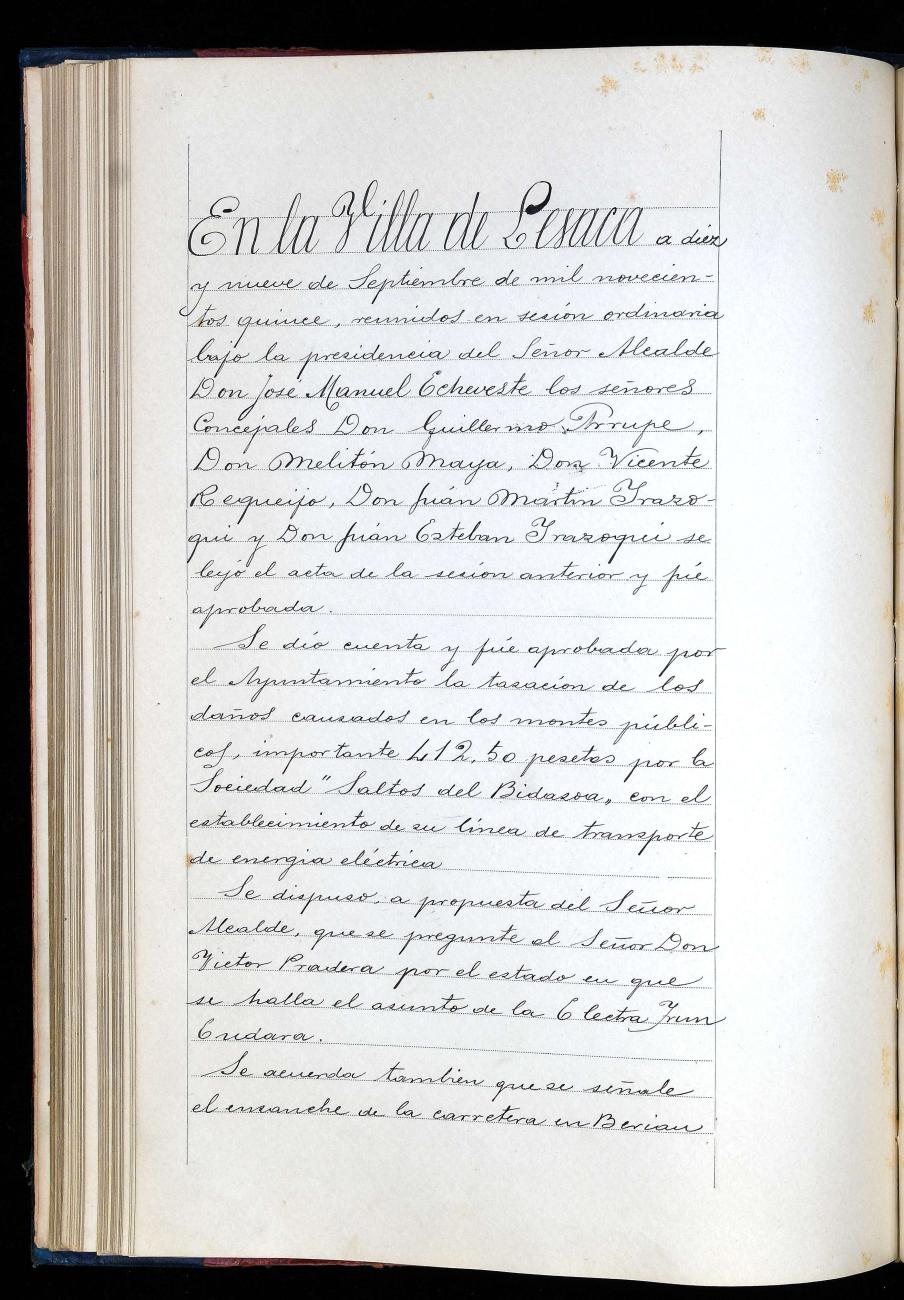 En la Villa de Lesaca a diez
y nueve de Septiembre de mil novecien-
tos quince, reunidos en sesión ordinaria
bajo la presidencia del Señor Alcalde
Don José Manuel Echeveste los señores
Concejales Don Guillermo Arrupe,
Don Melitón Maya, Don Vicente
Requeijo, Don Juán Martin Irazo-
qui y Don Juán Esteban Irazoqui se
leyó el acta de la sesión anterior y fúe
aprobada.
Se dió cuenta y fúe aprobada por
el Ayuntamiento la tasación de los
daños causados en los montes públi-
cos, importante 412,50 pesetas por la
Sociedad "Saltos del Bidasoa„ con el
establecimiento de su línea de transporte
de energia eléctrica
Se dispuso, a propuesta del Señor
Alcalde, que se pregunte al Señor Don
Victor Pradera por el estado en que
se halla el asunto de la Electra Irun
Endara.
Se acuerda tambien que se señale
el ensanche de la carretera en Berian